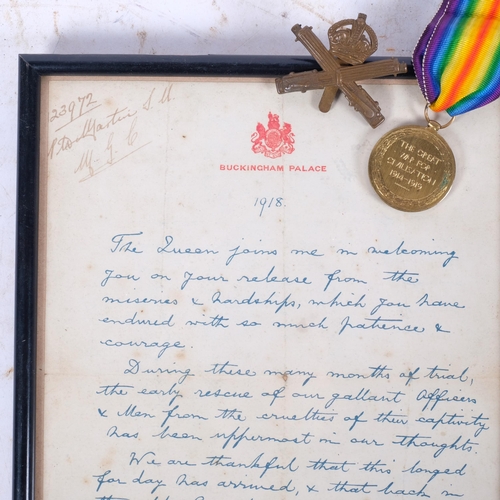 23972
Martin S. W.
M.G.C
BUCKINGHAM PALACE
1918.
THE GREAT
WAR FOR
CIVILISATION
1914-1919
The Queen joins me in welcoming
you on your release from the
miseries & hardships, which you have
endured with so much patience &
courage.
During these many months of trial,
the early rescue of our gallant Officers
& Men from the cruelties of their captivity
has been uppermost in our thoughts.
We are thankful that this longed
for day has arrived, & that back in